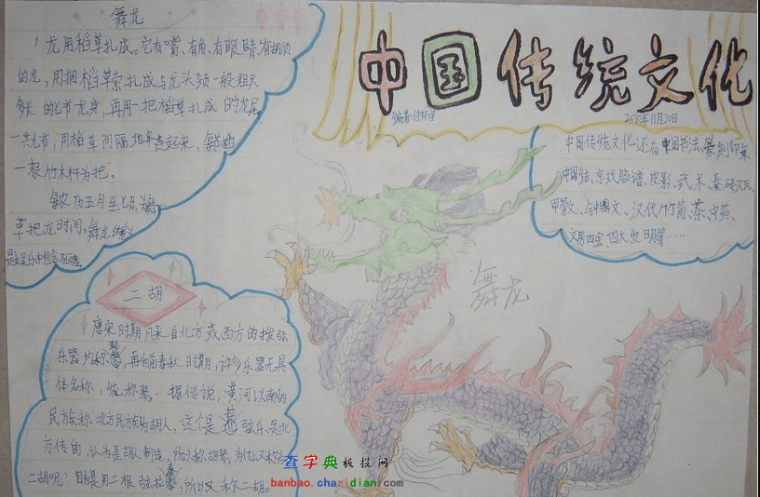 中国传统文化
2012年11月20日
舞龙
龙用稻草扎成。它有嘴、有角、有眼睛、有胡须
的龙,用捆稻草索扎成与龙头颈一般粗
的七节龙身,再用一把稻草扎成的龙尾
一共七节,用稻草间隔
一根竹木杆为把。
农历五月至七月
草把龙时间,舞龙
中国传统文化还有中国书法、篆刻印章、
中国结、京戏脸谱、皮影、武术、秦砖汉瓦、
甲骨文、钟鼎文、汉代竹简、茶、中药、
文房四宝、四大发明等……
舞龙
二胡
唐宋时期凡来自北方或西方的拨弦
乐器均称琴,再向前春秋时期,许多乐器无具
体名称,统称琴。据传说,黄河以南的
民族称北方民族为胡人,这个是弦乐是北
方传的,认为是胡人制造,所以称胡琴,为什么又称
二胡呢?因是用二根弦,所以又称二胡。
查字典板报网
banbao.chazidian.com